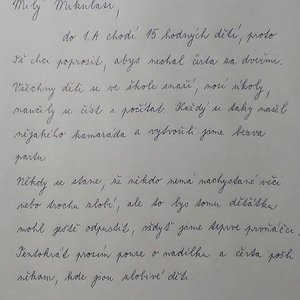 Milý Mikuláši,
do 1.A chodí 15 hodných dětí, proto
Tě chci poprosit, abys nechal čerta za dveřmi.
Všechny děti se ve škole snaží, nosí úkoly,
naučily se číst a počítat. Každý si taky našel
nějakého kamaráda a vytvořili jsme bezva
partu.
Někdy se stane, že někdo nemá nachystané věci
nebo trochu zlobí, ale to bys tomu děťátku
mohl ještě odpustit, vždyť jsme teprve prvňáčci.
Tentokrát prosím pouze o nadílku a čerta pošli
někam, kde jsou zlobivé děti.